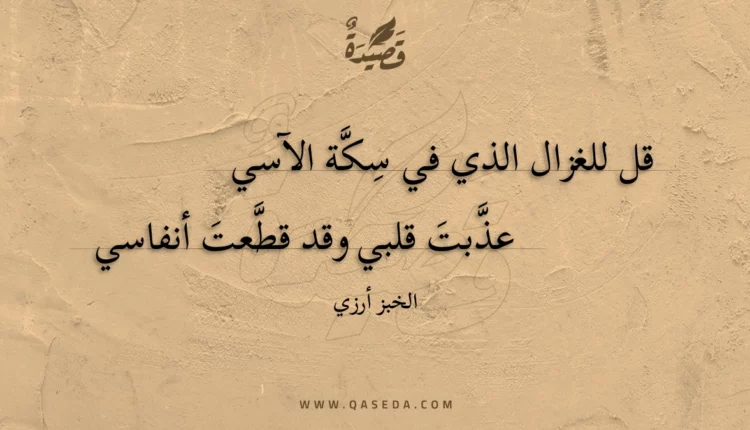 قَصِيْدَةٌ
قل للغزال الذي في سِكَّة الآسي
عذَّبتَ قلبي وقد قطَّعتَ أنفاسي
الخبز أرزي
WWW.QASEDA.COM